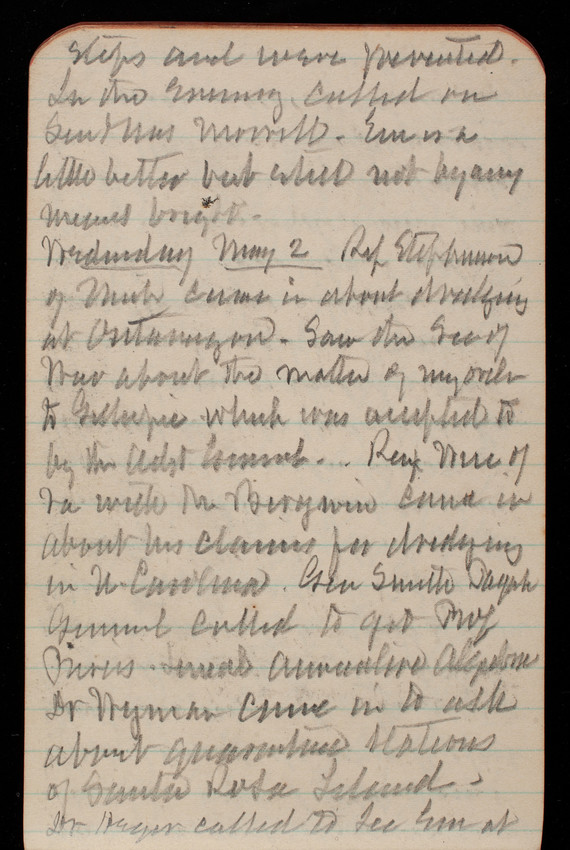 steps and were prevented.
In the Evening called on
Sen & Mrs Morrill. Em is a
little better but still not by any
means bright.
Wednesday May 2. Rep Stephenson
of Mich came in about dredging
at Ontonagon. Saw the Sec of
War about the matter of my order
to Gillespie which was excepted to
by the Adjt General... Rep Wise of
Va with Mr came in
about his claims for dredging
in N. Carolina. Gen Smith Paym
General called to get Prof
Dr Wyman came in to ask
about quarantine stations
of Santa Rosa Island.
Dr called to see Em at